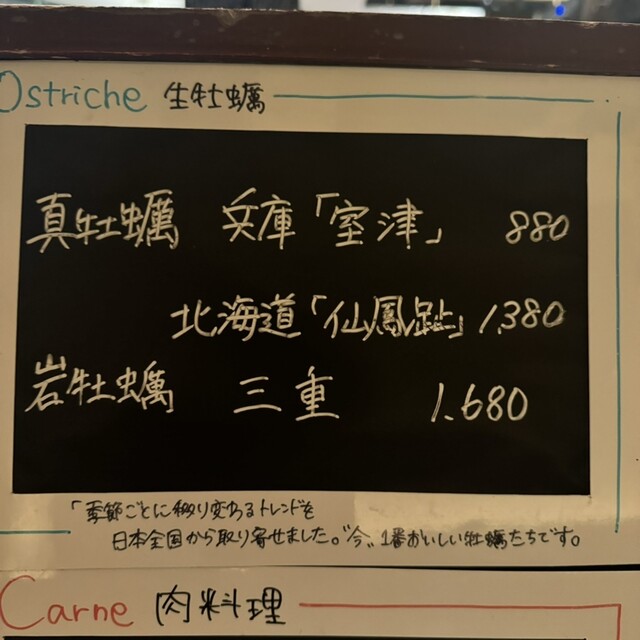 Ostriche 生牡蠣
真牡蠣 兵庫「室津」 880
北海道「仙鳳趾」 1,380
岩牡蠣 三重 1.680
「季節ごとに移り変わるトレンドを
日本全国から取り寄せました。"今"1番おいしい牡蠣たちです。
Carne 肉料理